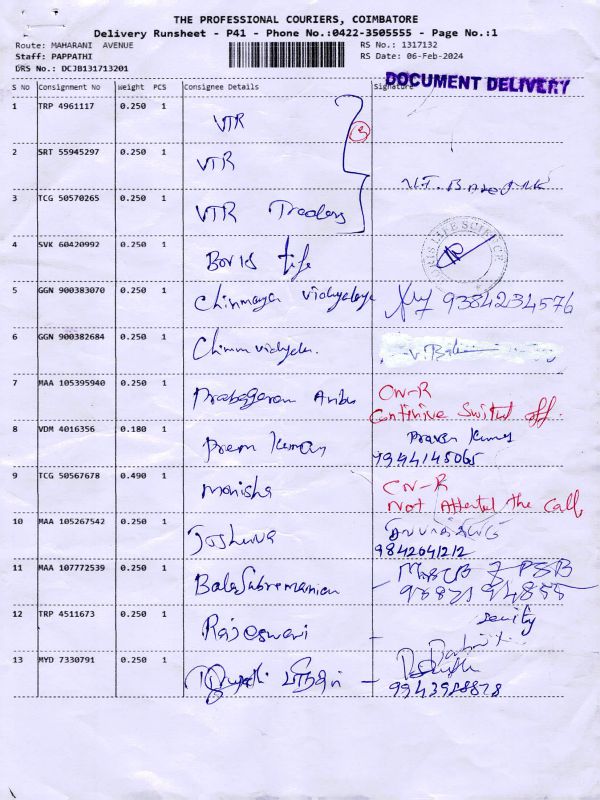 THE PROFESSIONAL COURIERS, COIMBATORE
Delivery Runsheet - P41 - Phone No.:0422-3505555 - Page No.:1
Route: MAHARANI AVENUE RS No.: 1317132
Staff: PAPPATHI RS Date: 06-Feb-2024
DRS No.: DCJB131713201
DOCUMENT DELIVERY
S No Consignment No Weight PCS Consignee Details Signature
1 TRP 4961117 0.250 1 VTR
2 SRT 55945297 0.250 1 VTR
3 TCG 50570265 0.250 1 VTR Traders
4 SVK 60420992 0.250 1 Boris life
5 GGN 900383070 0.250 1 Chinmaya vidyalaya 9384234576
6 GGN 900382684 0.250 1
7 MAA 105395940 0.250 1 Prabagaran Anbu CN-R
Continive Swited off.
8 VDM 4016356 0.180 1 Prem Kumar
9944145065
9 TCG 50567678 0.490 1 Monisha CN-R
Not Attented the Call
10 MAA 105267542 0.250 1 Joshuva
9842641212
11 MAA 107772539 0.250 1 BalaSubremanian
12 TRP 4511673 0.250 1 Rajeswari
13 MYD 7330791 0.250 1
9943988878